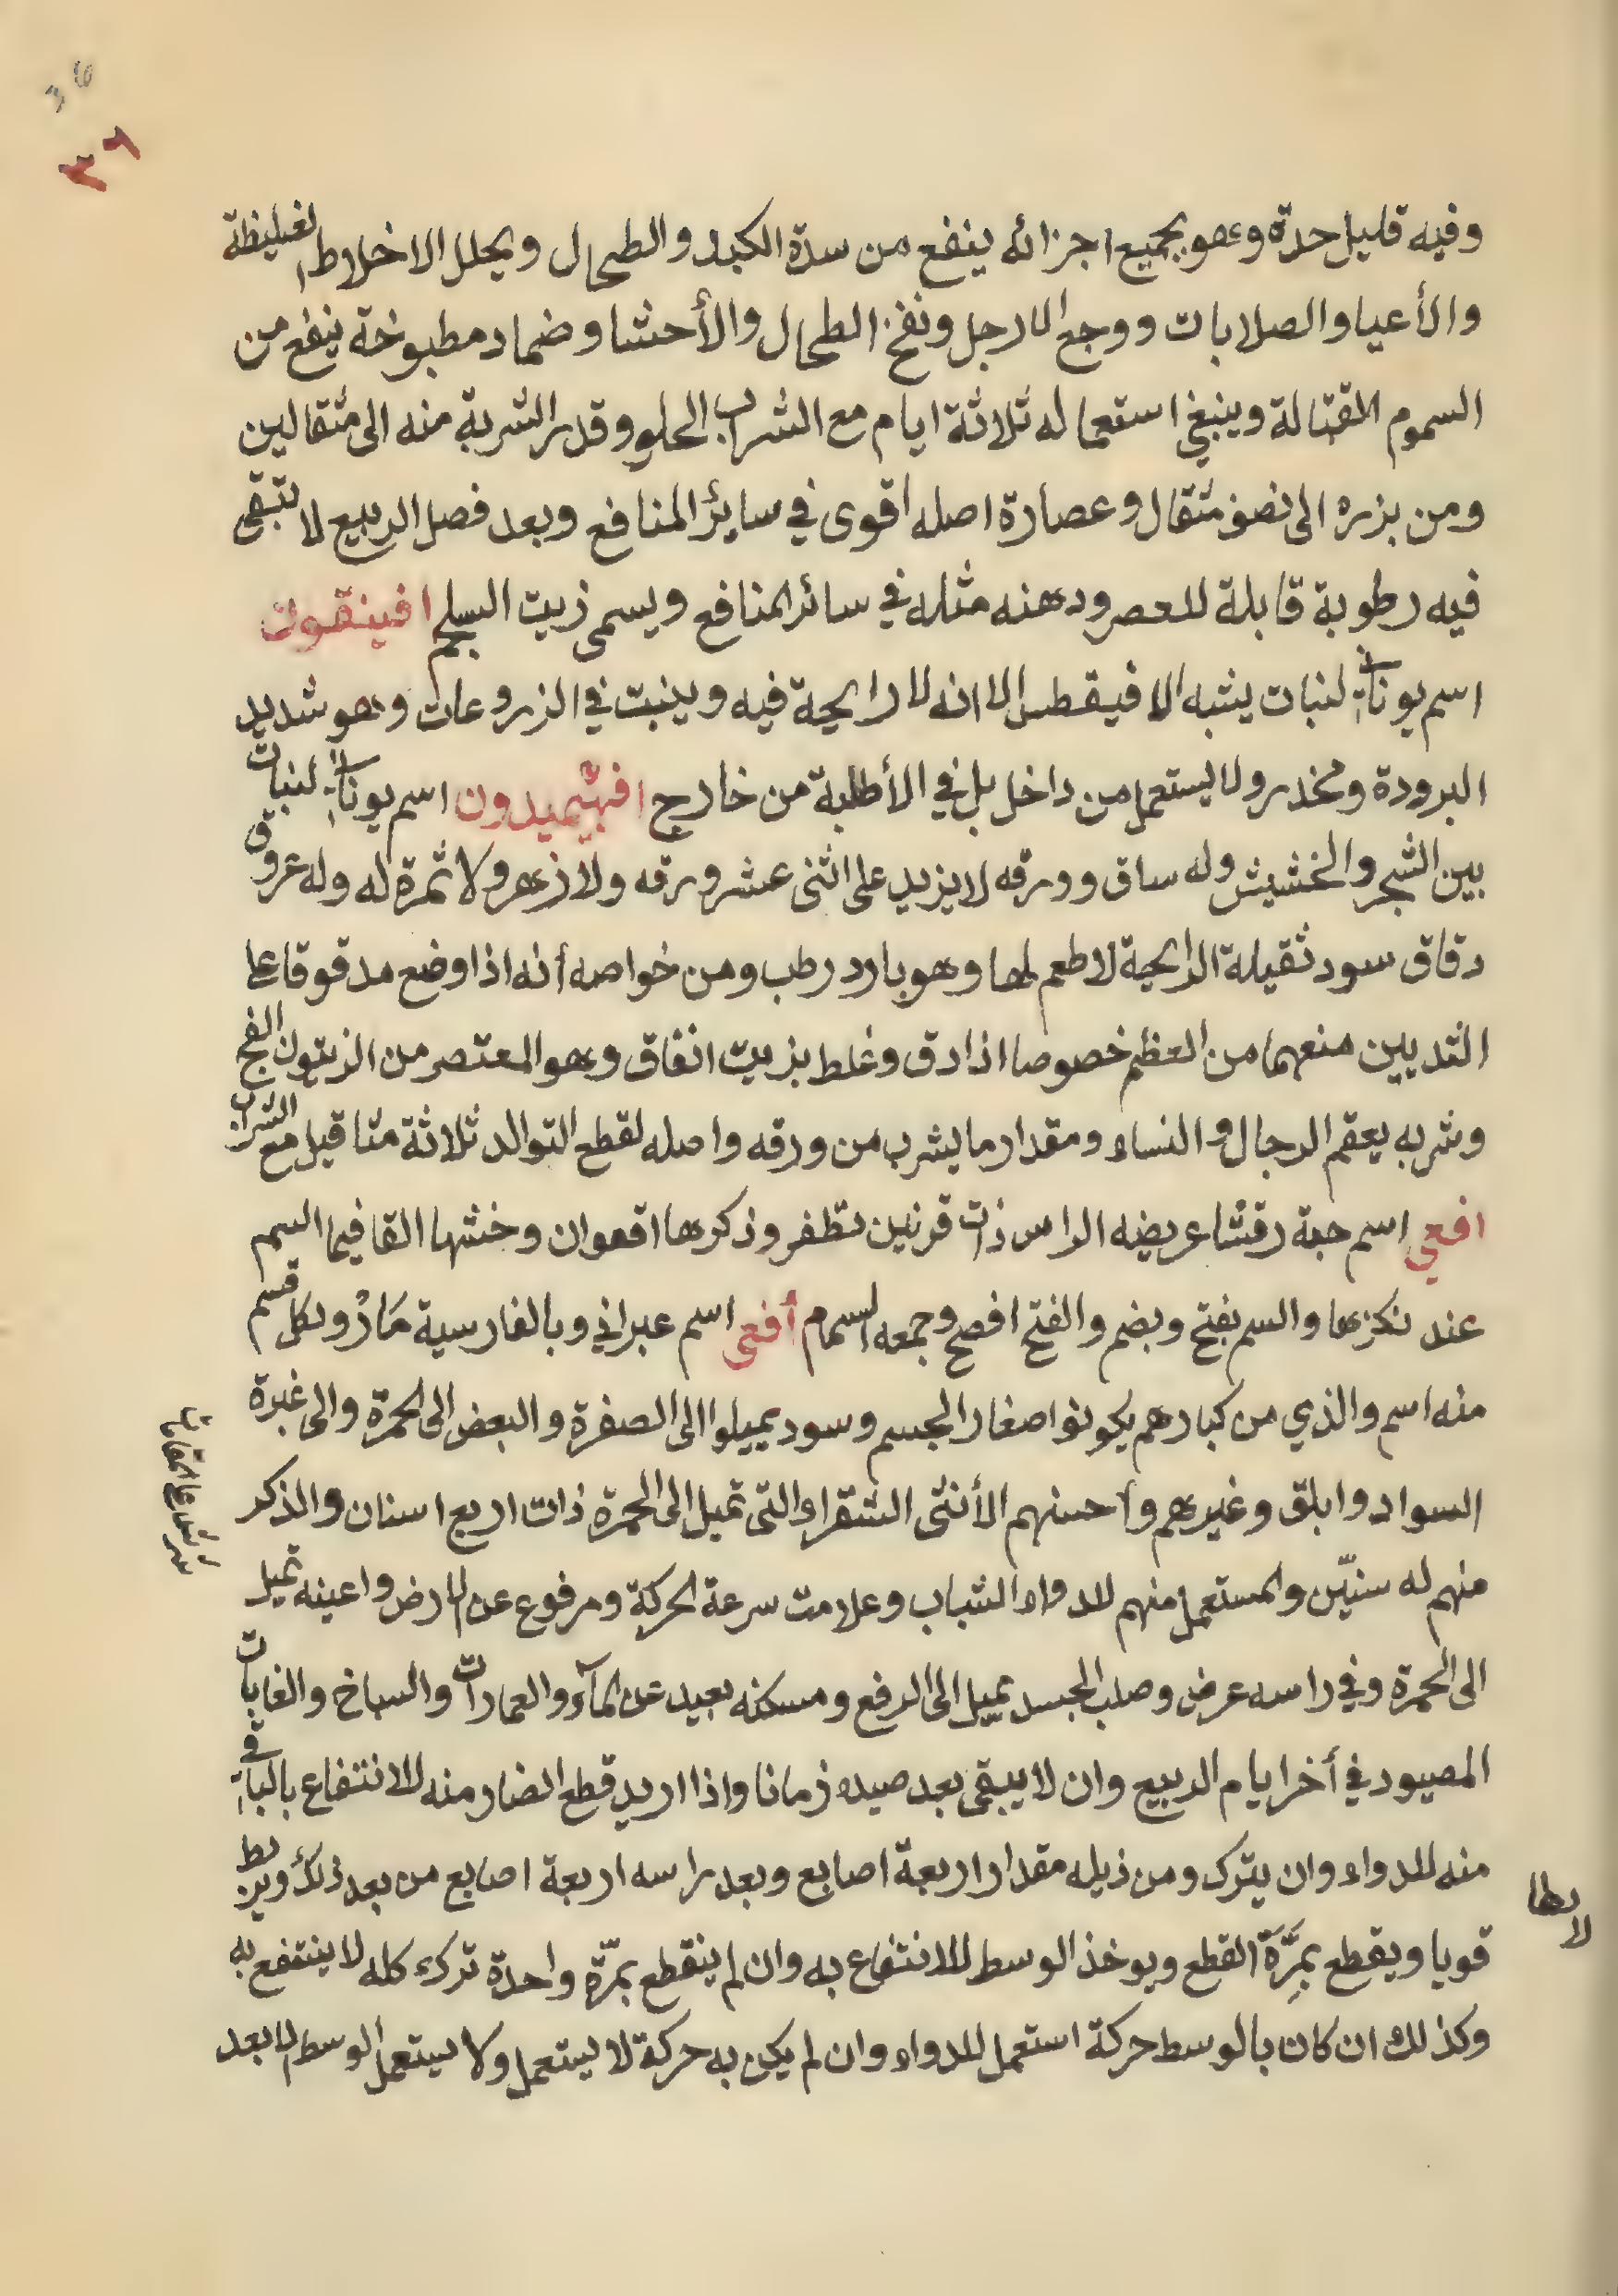 36
٣٦
وفيه قليل حدة وهو بجميع اجزائه ينفع من سدة الكبد والطحال ويحلل الاخلاط الغليظة
والأعيا والصلابات ووجع الارجل ونفخ الطحال والأحشا وضماد مطبوخة ينفع من
السموم القتالة وينبغي استعماله ثلاثة ايام مع الشراب الحلو وقدر الشربة منه الى مثقالين
ومن بزره الى نصف مثقال وعصارة اصله أقوى في سائر المنافع وبعد فصل الربيع لا تبقى
فيه رطوبة قابلة للعصر ودهنه مثله في سائر المنافع ويسمى زيت السلجم افينقون
اسم يوناني لنبات يشبه الافيقطس الا انه لا رايحة فيه وينبت في الزروعات وهو شديد
البرودة ومخدر ولا يستعمل من داخل بل في الأطلية من خارج افيثميدون اسم يوناني لنبات
بين الشجر والخشيش وله ساق وورقه لا يزيد على اثنى عشر ورقه ولا زهر ولا ثمرة له وله عروق
دقاق سود ثقيلة الرايحة لا طعم لها وهو بارد رطب ومن خواصه أنه اذا وضع مدقوقا على
الثديين منعهما من العظم خصوصا اذا دق وغلط بزيت انفاق وهو المعتصر من الزيتون الفج
وشربه يعقم الرجال والنساء ومقدار ما يشرب من ورقه واصله لقطع التوالد ثلاثة مثاقيل مع الشراب
افعي اسم حية رقشا عريضه الراس ذات قرنين تظفر وذكرها افعوان وخنثها القا فيها السم
عند نكزها والسم بفتح وبضم والفتح افصح وجمعه السمام أفعى اسم عبراني وبالفارسية مَارْ ولكل قسم
منه اسم والذي من كبارهم يكونوا صغار الجسم وسود يميلوا الى الصفرة والبعض الى الحمرة والى غبرة
السواد وابلق وغيرهم وأحسنهم الأنثى الشقراء التى تميل الى الحمرة ذات اربع اسنان والذكر
منهم له سنيّن والمستعمل منهم للدواء الشباب وعلامت سرعة الحركة ومرفوع عن الارض واعينه تميل
الى الحمرة وفي راسه عرض وصلب الجسد يميل الى الرفع ومسكنه بعيد عن المآء والعمارات والسباخ والغابات
المصيود في أخر ايام الربيع وان لا يبقى بعد صيده زمانا واذا اريد قطع الضار منه للانتفاع بالباقي
منه للدواء وان يترك ومن ذيله مقدار اربعة اصابع وبعد راسه اربعة اصابع من بعد ذلك ويربط
قويا ويقطع بمَرَّة القطع ويوخذ الوسط للانتفاع به وان لم ينقطع بمرّة واحدة ترك كله لا ينتفع به
وكذلك ان كان بالوسط حركة استعمل للدواء وان لم يكن به حركة لا يستعمل ولا يستعمل الوسط الا بعد